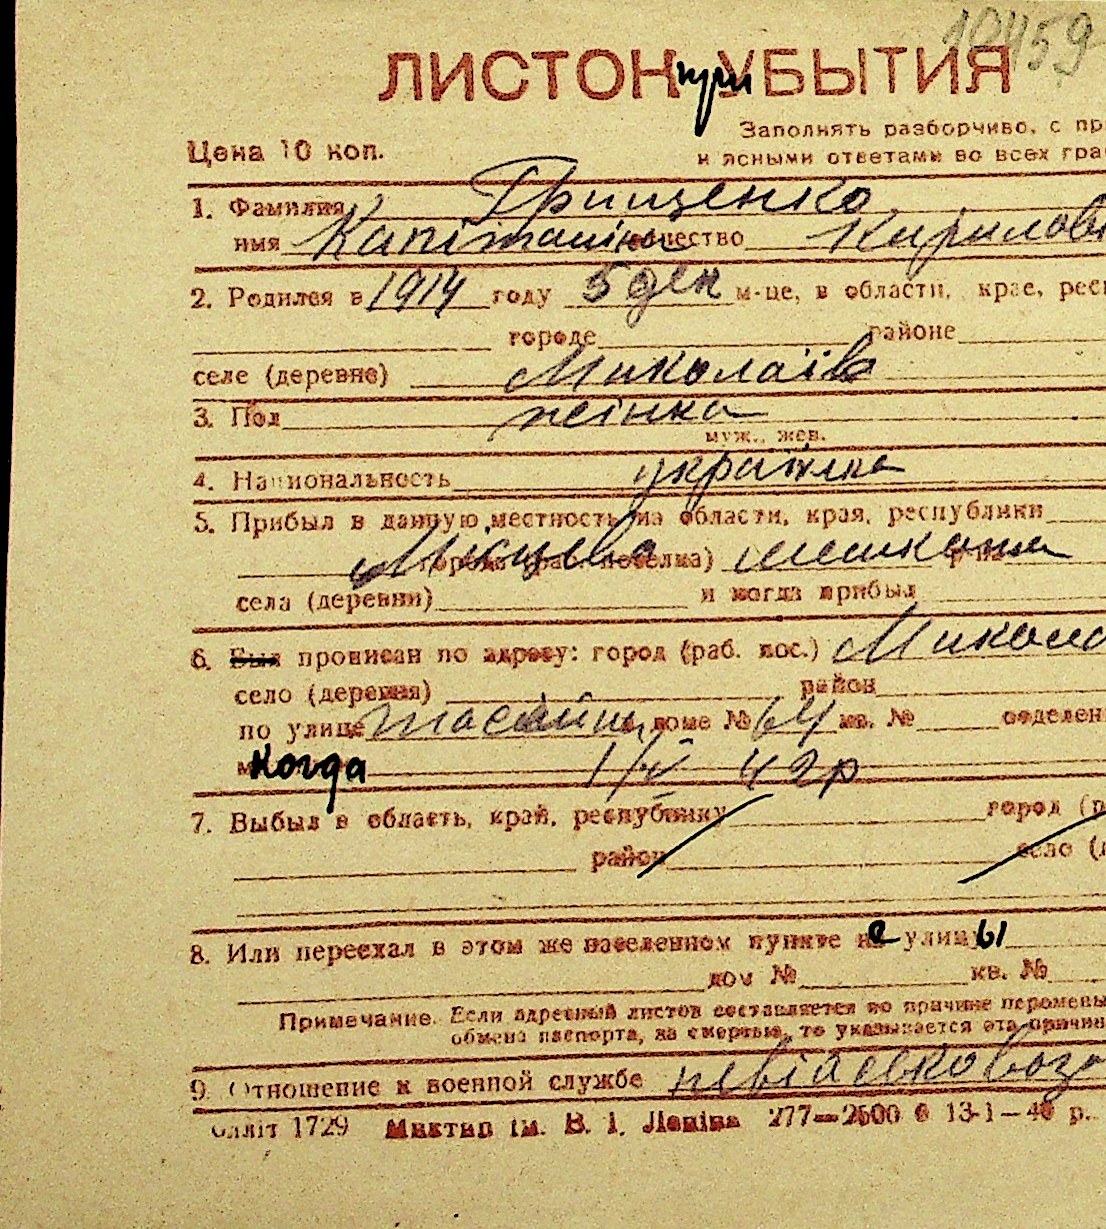 10459
ЛИСТОК при УБЫТИЯ
Заполнять разборчиво, с пр
Цена 10 коп.
и ясными ответами во всех гра
1. Фамилия Грищенко
имя Капіталіна отчество Кирилові
2. Родился в 1914 году 5 дек м-це, в области, крае, респ
городе районе
селе (деревне) Миколаїв
3. Пол жінка
муж., жен.
4. Национальность українка
5. Прибыл в данную местность из области, края, республики
Місцева города (раб. поселка) мешканка р-на
села (деревни) и когда прибыл
6. Был прописан по адресу: город (раб. пос.) Микола
село (деревня) район
по улице доме № 64 кв. № отделени
м Когда 1/IV 42р
7. Выбыл в область, край, республику город (р
район село (д
8. Или переехал в этом же населенном пункте не улицы
дом № кв. №
Примечание. Если адресный листок составляется по причине перемены
обмена паспорта, за смертью, то указывается эта причин
9. Отношение к военной службе невійсковозо
олліт 1729 Миктип ім. В. І. Леніна 277—2500 0 13-1—40 р.